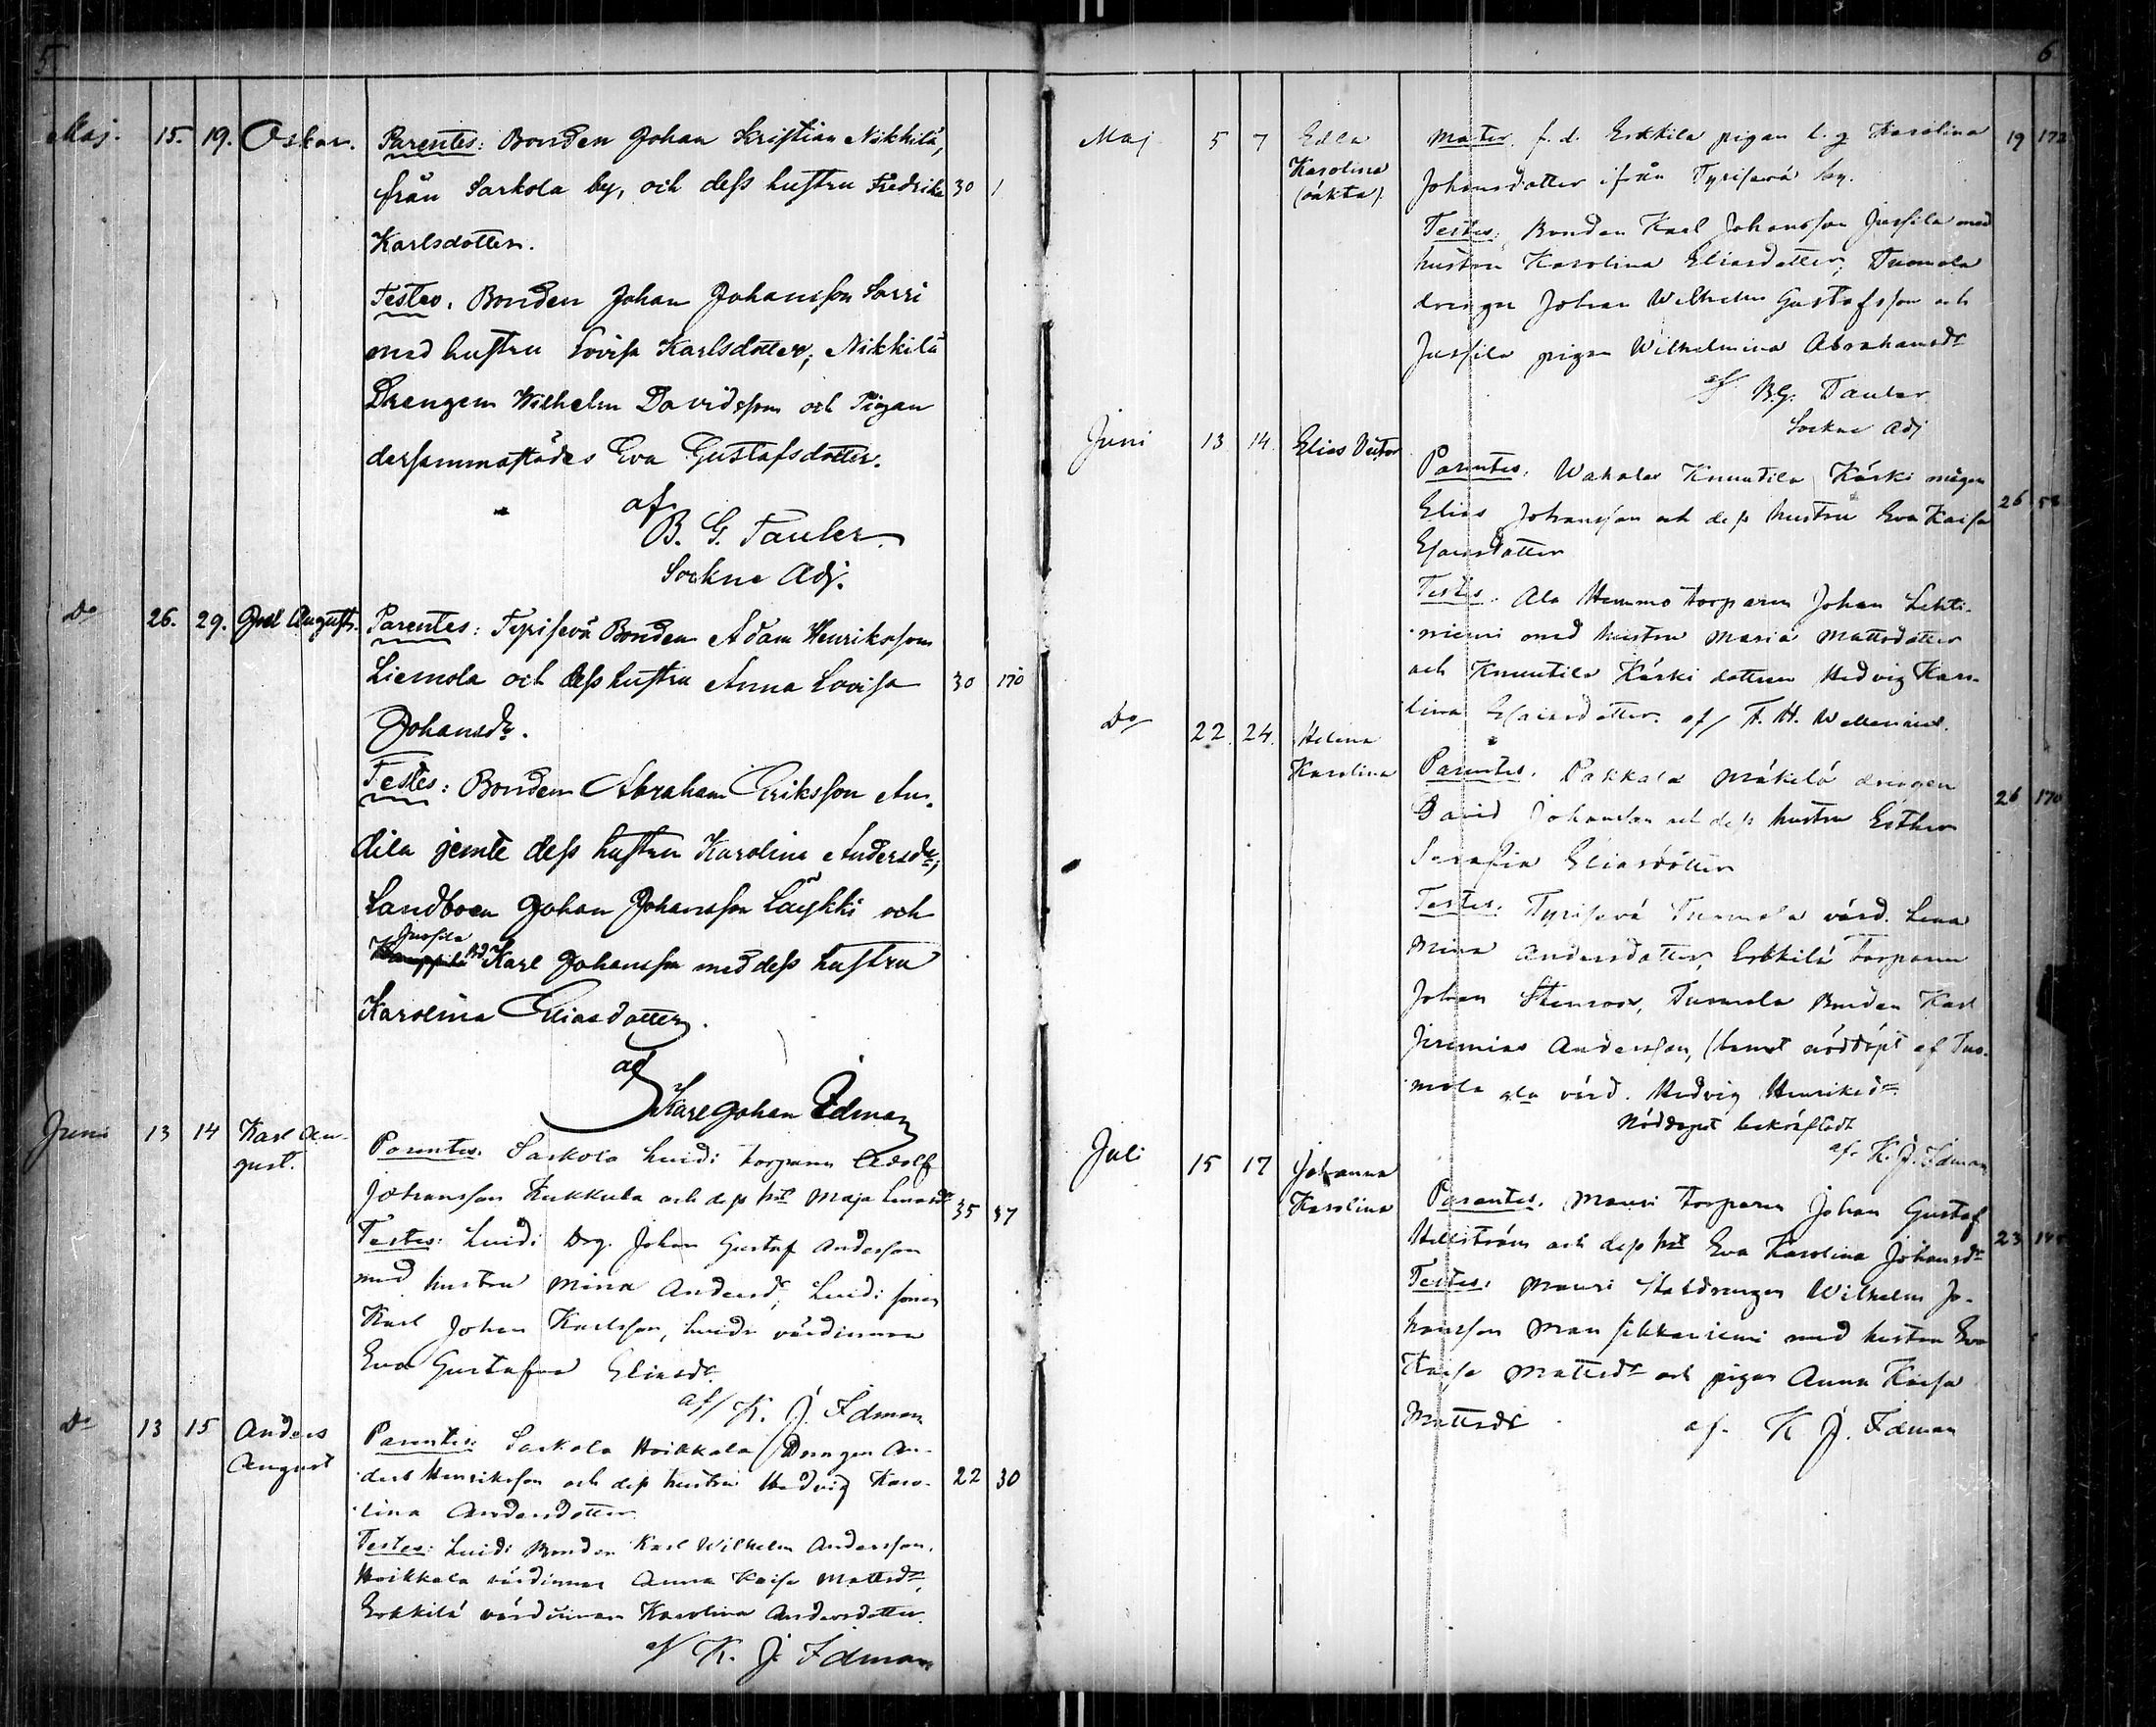 5
Maj. 15. 19. Oskar. Parentes: Bonden Johan Kristian Nikkilä,
från Sarkola by, och dess hustru Fredrika 30 1
Karlsdotter.
Testes. Bonden Johan Johansson Sorri
med hustru Lovisa Karlsdotter, Nikkilä
Drengen Wilhelm Davidsson och Pigan
dersammastädes Eva Gustafsdotter.
af
B. G. Tauler
Sockne Adj.
Do 26. 29. August. Parentes: Tyrisevä Bonden Adam Henriksson
Liemola och dess hustru Anna Lovisa 30 170
Johansdr.
Testes: Bonden Abraham Eriksson An-
dila jemte dess hustru Karolina Andersdr,
Landboen Johan Johansson Laykki och
Jussila
Bd Karl Johansson med dess hustru
Karolina Eliasdotter.
af
Karl Johan Idman
Juni 13 14 Karl Au-
gust.
Parentes. Sarkola Luidi torparen Adolf
Johansson Kukkula och dess hst Maja Lenasdr 35 37
Testes: Luidi Drg. Johan Gustaf Andersson
med hustru Mina Andersdr, Luidi sonen
Karl Johan Karlsson, Luidi värdinnan
Eva Gustafva Eliasdr.
af/ K. J. Idman
Do 13 15 Anders
August
Parentes: Sarkola Hoikkala Drengen An-
ders Henriksson och dess hustru Hedvig Karo- 22 30
lina Andersdotter
Testes: Luidi Bonden Karl Wilhelm Andersson.
Hoikkala värdinnan Anna Kaisa Mattsdr,
Erkkilä värdinnan Karolina Andersdotter.
af K. J. Idman
6
Maj 5 7 Edla
Karolina
(oäkta).
Mater. f.d. Erkkilä pigan Karolina 19 172
Johansdotter ifrån Tyrisevä by.
Testes. Bonden Karl Johansson Jussila med
hustru Karolina Eliasdotter, Tuomola
drengen Johan Wilhelm Gustafsson och
Jussila pigan Wilhelmina Abrahamsdr
af B.G. Tauler
Sockne Adj
Juni 13 14. Elias Victor
Parentes. Wahalax Knuutila Käski mågen
Elias Johansson och dess hustru Eva Kaisa 26 58
Esaiasdotter
Testes. Ala Hemmo torparen Johan Lehti-
niemi med hustru Maria Mattsdotter
och Knuutila Käski dottren Hedvig Karo-
lina Esaiasdotter. af/ F. H. Wallenius.
Do 22. 24. Helena
Karolina
Parentes. Pakkala Mäkelä drengen 26 170
David Johansson och dess hustru Esther
Serafia Eliasdotter
Testes. Tyrisevä Tuomola värd. Lena
Mina Andersdotter, Erkkilä torparen
Johan Stenroos, Tuomola Bonden Karl
Jeremias Andersson, nöddöpt af Tuo-
mola värd. Hedvig Henriksdr.
Nöddopet bekräftadt
af. K. J. Idman
Juli 15 17 Johanna
Karolina
Parentes. Mauri torparen Johan Gustaf
Hellström och dess hst Eva Karolina Johansdr 23
Testes. Mauri Statdrengen Wilhelm Jo-
hansson Mansikkaniemi med hustru Eva
Kaisa Mattsdr och pigan Anna Kaisa
Mattsdr af. K. J. Idman